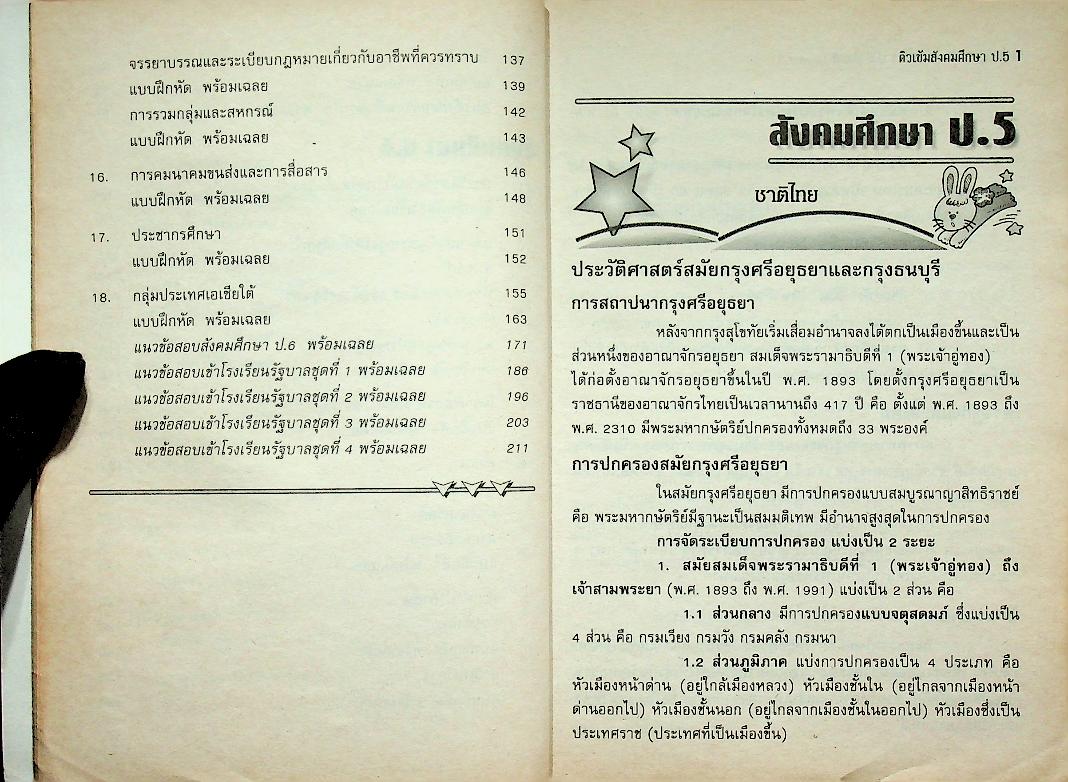 จรรยาบรรณและระเบียบกฎหมายเกี่ยวกับอาชีพที่ควรทราบ 137
แบบฝึกหัด พร้อมเฉลย 139
การรวมกลุ่มและสหกรณ์ 142
แบบฝึกหัด พร้อมเฉลย 143
16. การคมนาคมขนส่งและการสื่อสาร 146
แบบฝึกหัด พร้อมเฉลย 148
17. ประชากรศึกษา 151
แบบฝึกหัด พร้อมเฉลย 152
18. กลุ่มประเทศเอเชียใต้ 155
แบบฝึกหัด พร้อมเฉลย 163
แนวข้อสอบสังคมศึกษา ป.6 พร้อมเฉลย 171
แนวข้อสอบเข้าโรงเรียนรัฐบาลชุดที่ 1 พร้อมเฉลย 186
แนวข้อสอบเข้าโรงเรียนรัฐบาลชุดที่ 2 พร้อมเฉลย 196
แนวข้อสอบเข้าโรงเรียนรัฐบาลชุดที่ 3 พร้อมเฉลย 203
แนวข้อสอบเข้าโรงเรียนรัฐบาลชุดที่ 4 พร้อมเฉลย 211
ติวเข้มสังคมศึกษา ป.5 1
สังคมศึกษา ป.5
ชาติไทย
ประวัติศาสตร์สมัยกรุงศรีอยุธยาและกรุงธนบุรี
การสถาปนากรุงศรีอยุธยา
หลังจากกรุงสุโขทัยเริ่มเสื่อมอำนาจลงได้ตกเป็นเมืองขึ้นและเป็น
ส่วนหนึ่งของอาณาจักรอยุธยา สมเด็จพระรามาธิบดีที่ 1 (พระเจ้าอู่ทอง)
ได้ก่อตั้งอาณาจักรอยุธยาขึ้นในปี พ.ศ. 1893 โดยตั้งกรุงศรีอยุธยาเป็น
ราชธานีของอาณาจักรไทยเป็นเวลานานถึง 417 ปี คือ ตั้งแต่ พ.ศ. 1893 ถึง
พ.ศ. 2310 มีพระมหากษัตริย์ปกครองทั้งหมดถึง 33 พระองค์
การปกครองสมัยกรุงศรีอยุธยา
ในสมัยกรุงศรีอยุธยา มีการปกครองแบบสมบูรณาญาสิทธิราชย์
คือ พระมหากษัตริย์มีฐานะเป็นสมมติเทพ มีอำนาจสูงสุดในการปกครอง
การจัดระเบียบการปกครอง แบ่งเป็น 2 ระยะ
1. สมัยสมเด็จพระรามาธิบดีที่ 1 (พระเจ้าอู่ทอง) ถึง
เจ้าสามพระยา (พ.ศ. 1893 ถึง พ.ศ. 1991) แบ่งเป็น 2 ส่วน คือ
1.1 ส่วนกลาง มีการปกครองแบบจตุสดมภ์ ซึ่งแบ่งเป็น
4 ส่วน คือ กรมเวียง กรมวัง กรมคลัง กรมนา
1.2 ส่วนภูมิภาค แบ่งการปกครองเป็น 4 ประเภท คือ
หัวเมืองหน้าด่าน (อยู่ใกล้เมืองหลวง) หัวเมืองชั้นใน (อยู่ไกลจากเมืองหน้า
ด่านออกไป) หัวเมืองชั้นนอก (อยู่ไกลจากเมืองชั้นในออกไป) หัวเมืองซึ่งเป็น
ประเทศราช (ประเทศที่เป็นเมืองขึ้น)